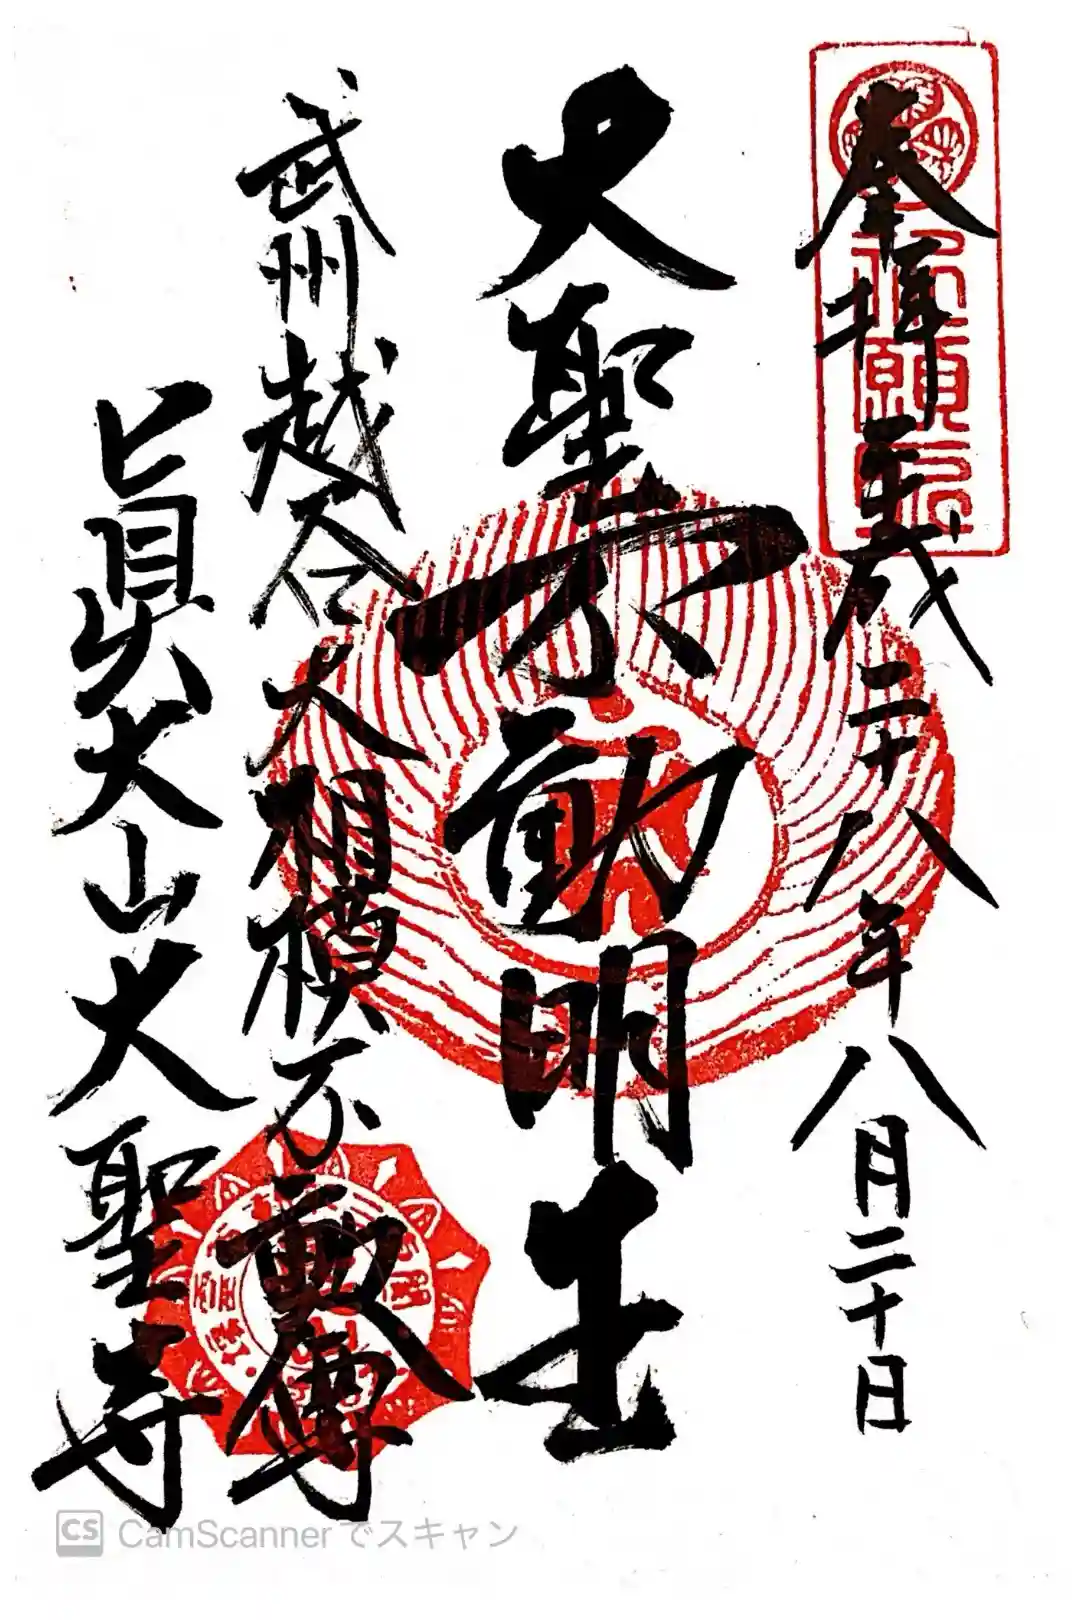 奉拝 平成二十八年八月二十日
大聖不動明王
武州越谷大相模不動尊
眞大山大聖寺
CS CamScannerでスキャン